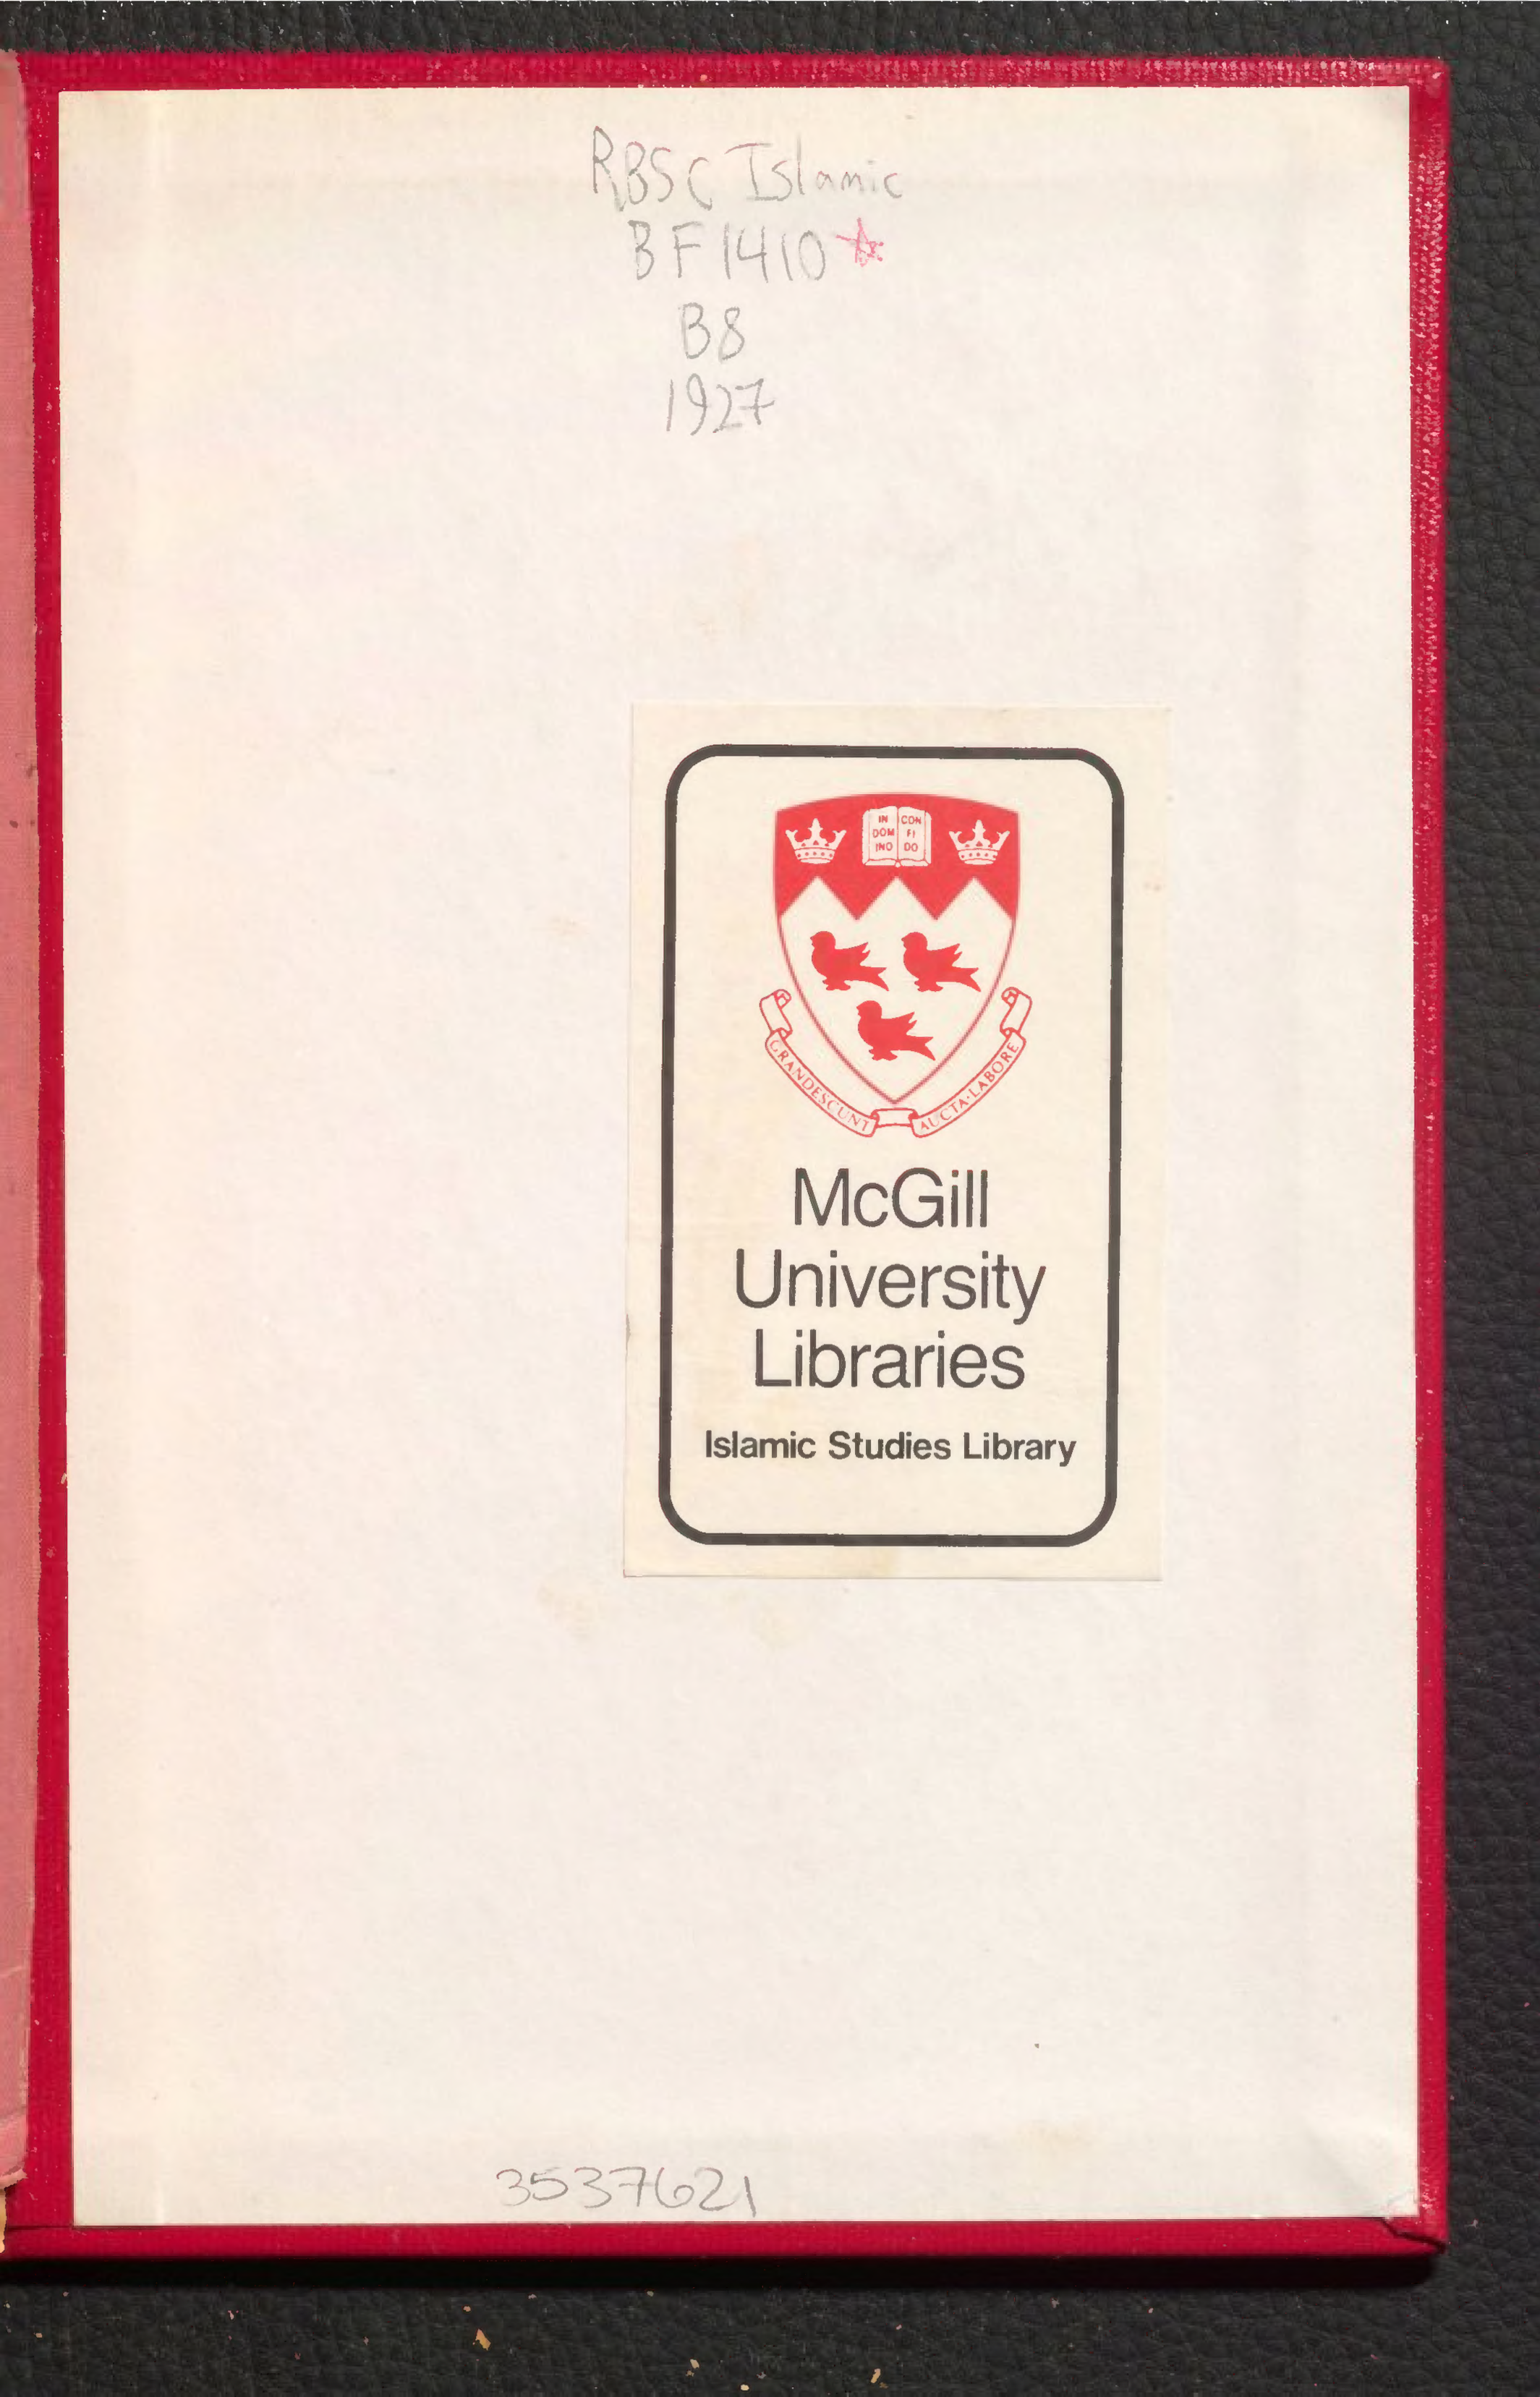 RBSC Islamic
BF1410☆
B8
1927
IN CON
DOM FI
INO DO
GRANDESCUNT AUCTA·LABORE
McGill
University
Libraries
Islamic Studies Library
3537621